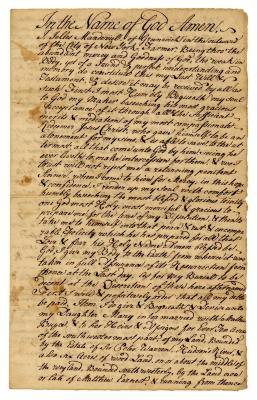 In the Name of God Amen.
I Yellis Mandevill of Greenwich in the outward
of the City of New York, Farmer. Being thro' the
abundant mercy and Goodness of God, tho' weak in
Body, yet of a sound & perfect understanding and
memory do constitute this my last Will &
Testament & desire it may be received by all as
such. First I most Humbly Bequeath my soul
to God my Maker beseeching his most gracious
acceptance of it through the all sufficient
merits & mediations of my most compassionate
Redeemer Jesus Christ, who gave himself to be an
attonement for my sins, & is able to save to the ut=
termost all that come unto God by him, seeing he
ever liveth to make intercession for them, & who I
trust will not reject me a returning penitent
sinner, when I come to him for Mercy, in this hope
& confidence I render up my soul with comfort
humbly beseeching the most blessed & glorious Trinity
one God most Holy, most merciful & gracious to
prepare me for the time of my Dissolution, & then to
take me to himself into that peace & rest & incom=
parable felicity which he has prepared for all that
Love & fear his Holy Name. Amen blessed be
God. I give my Body to the Earth from whence it was
taken in full assurance of its Resurrection from
thence at the Last day. As for my Burial I de=
sire at the Discretion of
I will positively order that all my Debts
be paid. Item I give & Bequeath & Devise unto
my Daughter Mary
& to her Heirs & Assigns for Ever
of the south
by the Estate of Sir Peter Warren,
also six Acres of wood Land
the wey land Bounded southwesterly by the Land now
or late of Matthew & running from thence